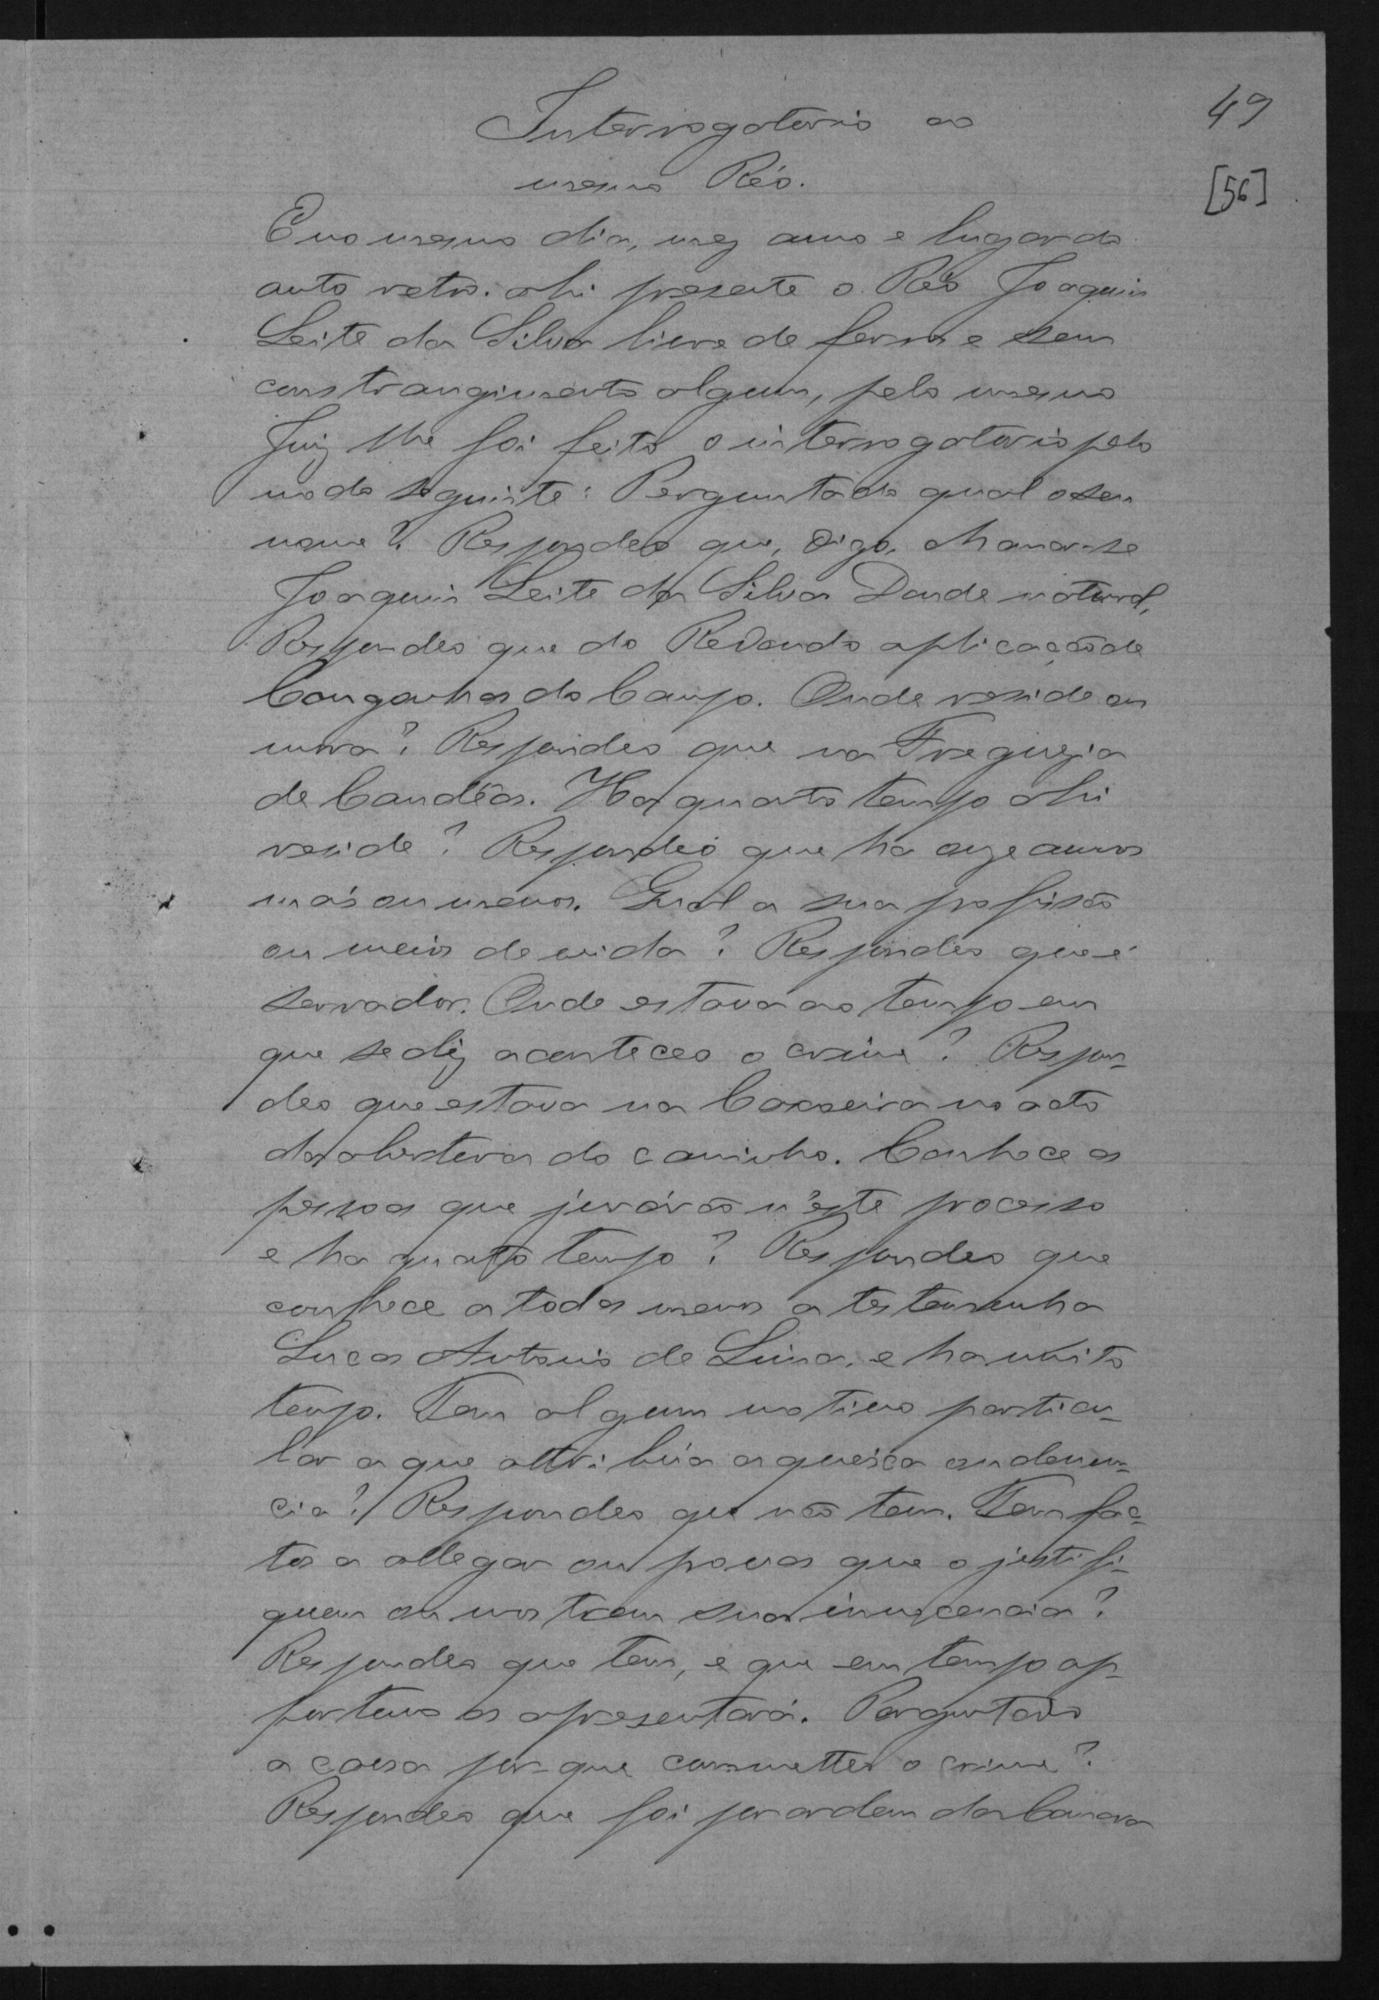 49
[56]
Interrogatorio ao
mesmo Réo.
E no mesmo dia, mez anno e lugar do
auto retro. ahi presente o Réo Joaquim
Leite da Silva livre de ferros e sem
constrangimento algum, pelo mesmo
Juiz lhe foi feito o interrogatorio pelo
modo seguinte: Perguntado qual o seu
nome? Respondeo que, digo, chamar-se
Joaquim Leite da Silva Donde natural,
Respondeo que do Redondo aplicação de
Congonhas do Campo. Onde reside ou
mora? Respondeo que na Freguezia
de Candêas. Ha quanto tempo ahi
reside? Respondeo que ha onze annos
mais ou menos. Qual a sua profissão
ou meios de vida? Respondeo que é
serrador. Onde estava ao tempo em
que se diz aconteceo o crime? Respon-
deo que estava na Caxoeira no acto
da abertura do caminho. Conhece as
pessoas que jurárão n'este processo
e ha quanto tempo? Respondeo que
conhece a todas menos a testemunha
Lucas Antonio de Lima, e ha muito
tempo. Tem algum motivo particu-
lar a que attribúa a queixa ou denun-
cia? Respondeo que não tem. Tem fac-
tos a allegar ou provas que o justifi-
quem ou mostrem sua innocencia?
Respondeo que tem, e que em tempo op-
portuno as apresentará. Perguntado
a causa por-que commetteo o crime?
Respondeo que foi por ordem da Camara